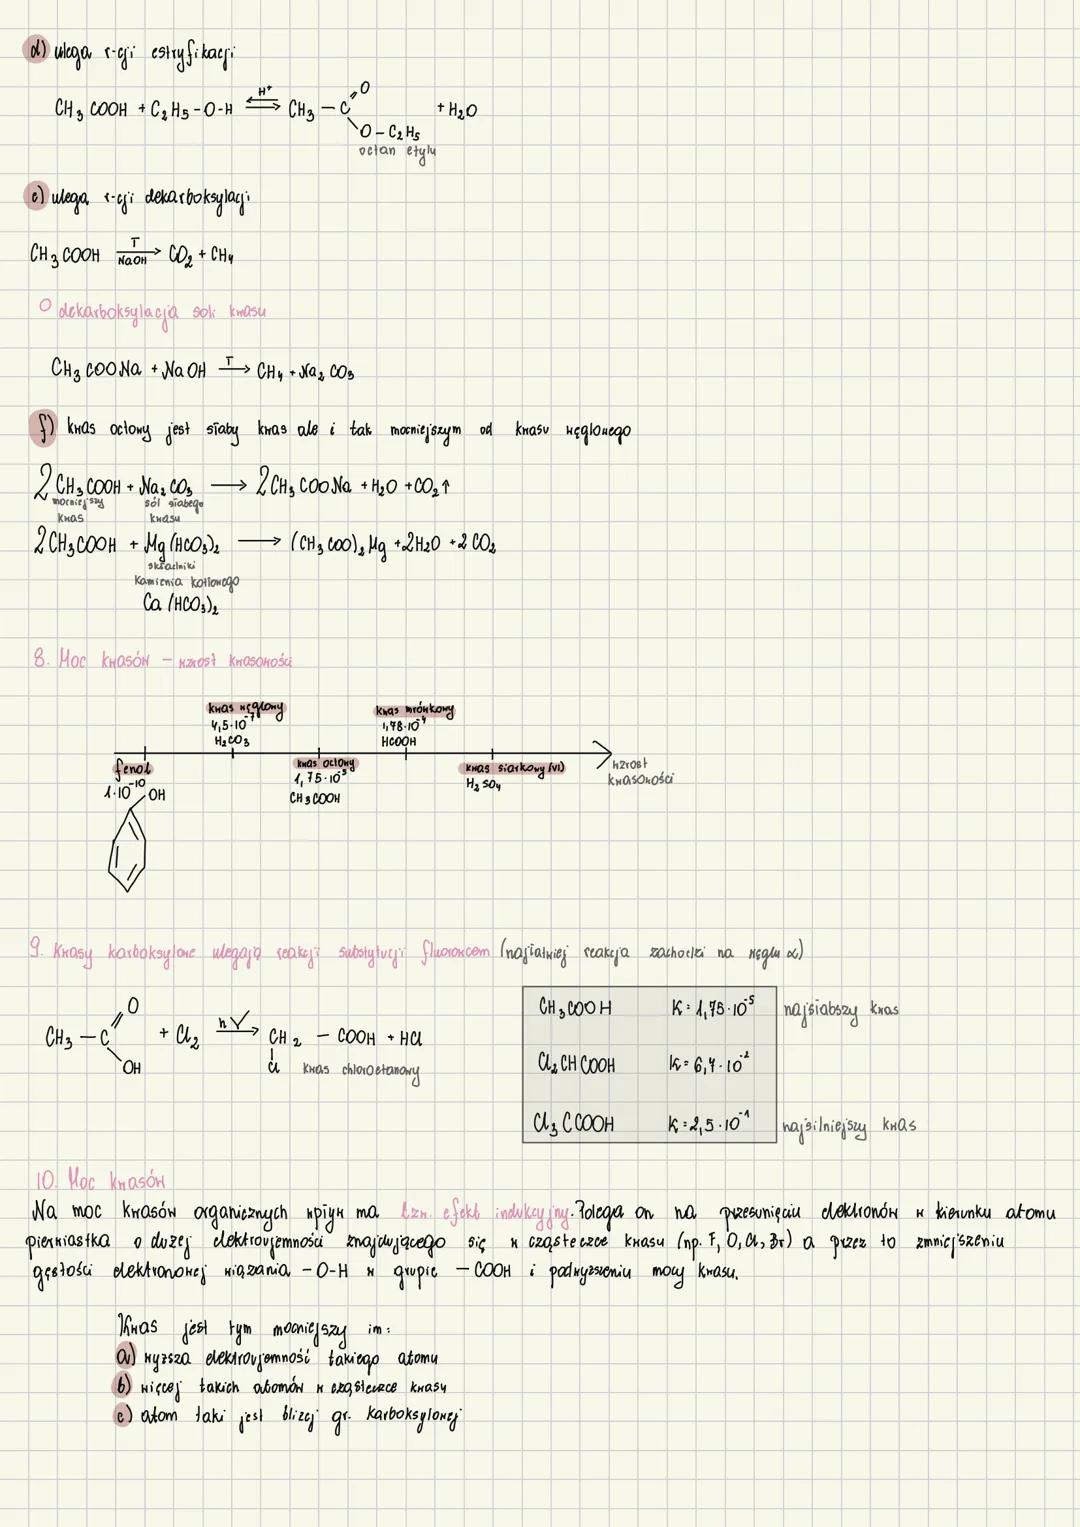 d) ulega r-cji estryfikacji
CH₃COOH + C₂H₅-O-H ⇌ H⁺ CH₃-C O + H₂O
O-C₂H₅
octan etylu
e) ulega r-cji dekarboksylacji
CH₃COOH T NaOH → CO₂ + CH₄
dekarboksylacja soli kwasu
CH₃COONa + NaOH T → CH₄ + Na₂CO₃
f) kwas octowy jest słaby kwas ale i tak mocniejszym od kwasu węglowego
2CH₃COOH + Na₂CO₃ → 2CH₃COONa + H₂O + CO₂↑
mocniejszy sól słabego
kwas kwasu
2CH₃COOH + Mg(HCO₃)₂ → (CH₃COO)₂Mg + 2H₂O + 2CO₂
składniki
kamienia kotłowego
Ca(HCO₃)₂
8. Moc kwasów - wzrost kwasowości
kwas węglowy
4,5·10⁻⁷
H₂CO₃
kwas mrówkowy
1,78·10⁻⁴
HCOOH
fenol
1·10⁻¹⁰
OH
kwas octowy
1,75·10⁻⁵
CH₃COOH
kwas siarkowy (VI)
H₂SO₄
wzrost
kwasowości
9. Kwasy karboksylowe ulegają reakcji substytucji fluorowcem (najłatwiej reakcja zachodzi na węglu α)
CH₃-C O OH + Cl₂ hν → CH₂ - COOH + HCl
Cl kwas chloroetanowy
CH₃COOH K=1,75·10⁻⁵ najsłabszy kwas
Cl₂CHCOOH K=6,4·10⁻²
Cl₃CCOOH K=2,5·10⁻¹ najsilniejszy kwas
10. Moc kwasów
Na moc kwasów organicznych wpływ ma tzn. efekt indukcyjny. Polega on na przesunięciu elektronów w kierunku atomu
pierwiastka o dużej elektroujemności znajdującego się w cząsteczce kwasu (np. F, O, Cl, Br) a przez to zmniejszeniu
gęstości elektronowej wiązania -O-H w grupie -COOH i podwyższeniu mocy kwasu.
Kwas jest tym mocniejszy im:
a) wyższa elektroujemność takiego atomu
b) więcej takich atomów w cząsteczce kwasu
c) atom taki jest bliżej gr. karboksylowej